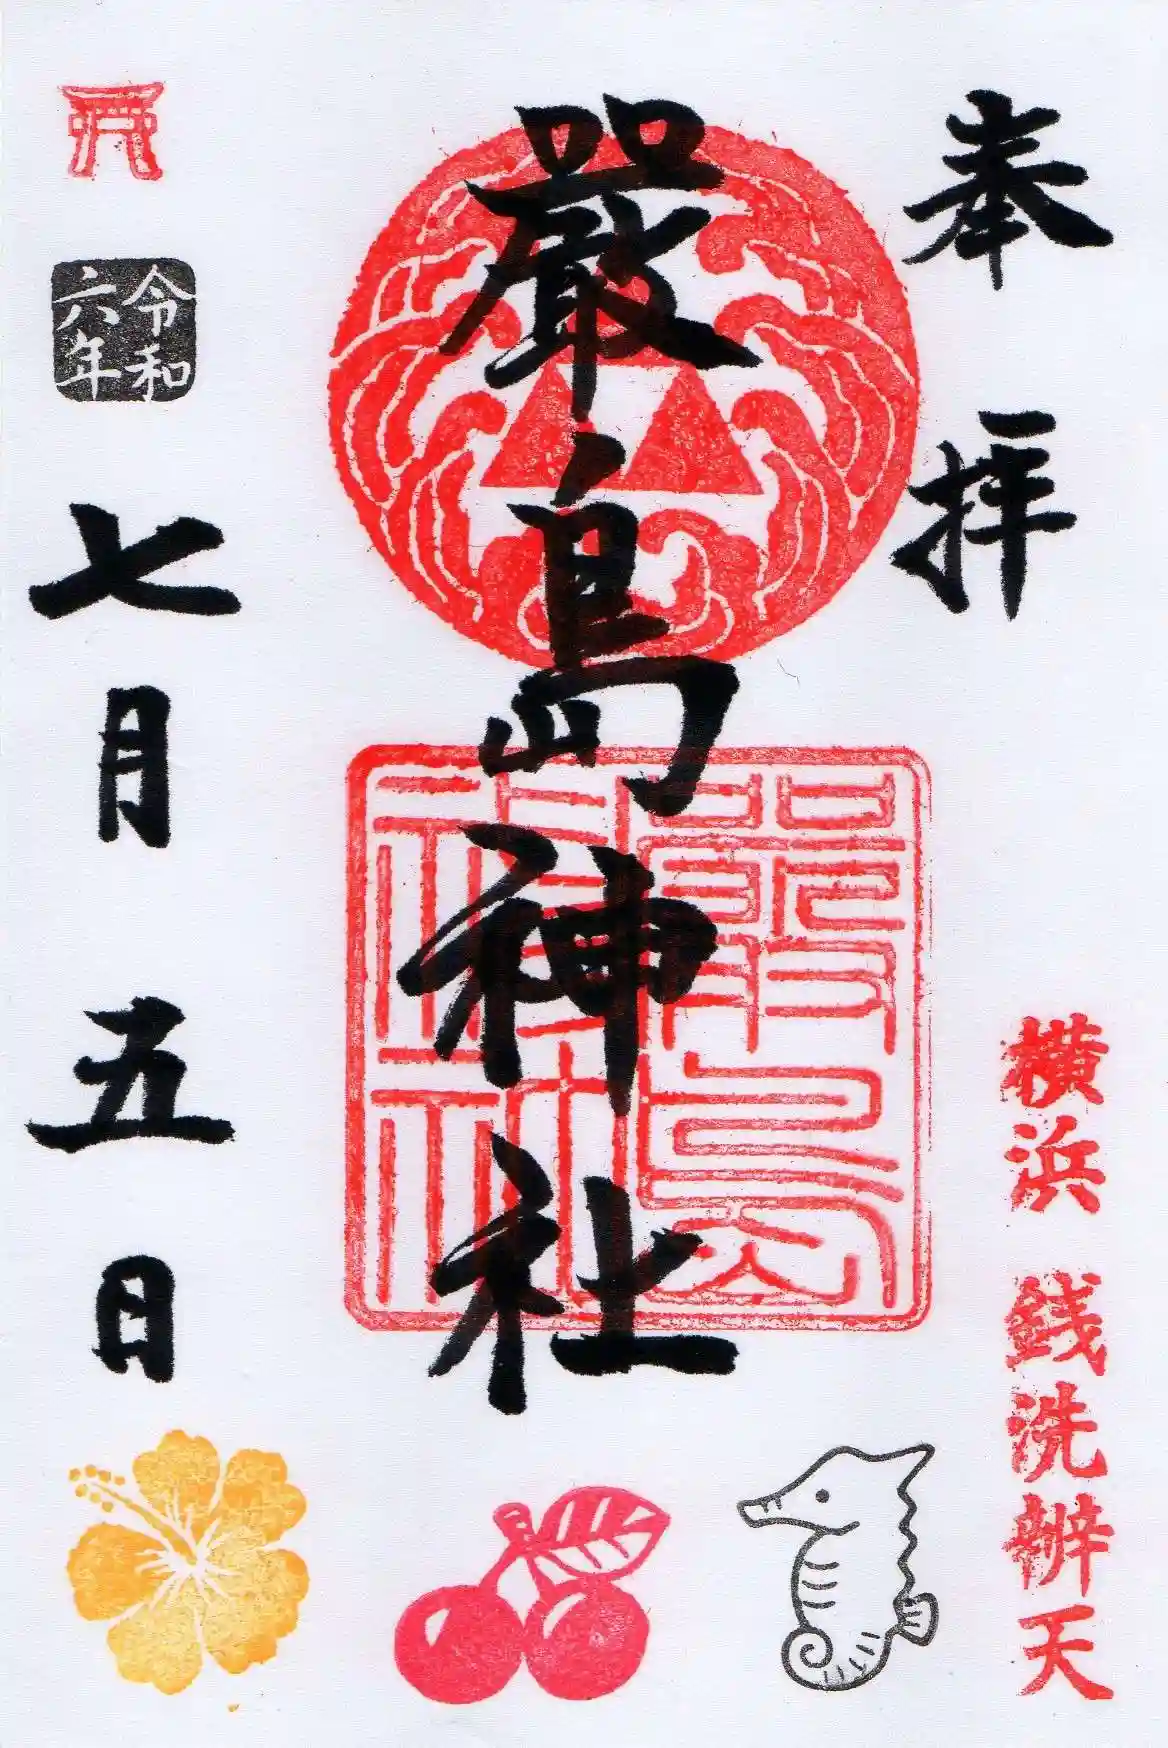 奉拝
横浜 銭洗辨天
嚴島神社
嚴島神社
令和六年
七月五日